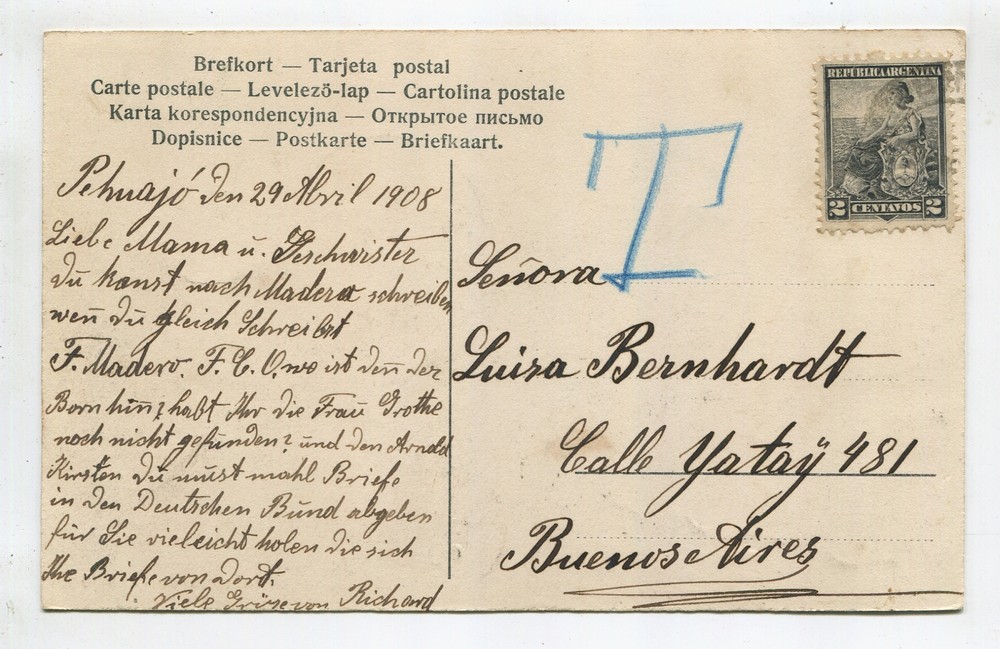 Brefkort — Tarjeta postal
Carte postale — Levelező-lap — Cartolina postale
Karta korespondencyjna — Открытое письмо
Dopisnice — Postkarte — Briefkaart.
Pehuajó den 29 Abril 1908
Liebe Mama u. Geschwister
du kanst nach Madero schreiben
weñ du gleich Schreibst
F. Madero. F. C. O. wo ist deñ der
Born hiñ? habt Ihr die Frau Grothe
noch nicht gefunden? und den Arnold
Kirsten du must mahl Briefe
in den Deutschen Bund abgeben
für Sie vieleicht holen die sich
Ihre Briefe von dort.
Viele Grüse von Richard
REPÚBLICA ARGENTINA
2 CENTAVOS 2
T
Señora
Luisa Bernhardt
Calle Yataÿ 481
Buenos Aires